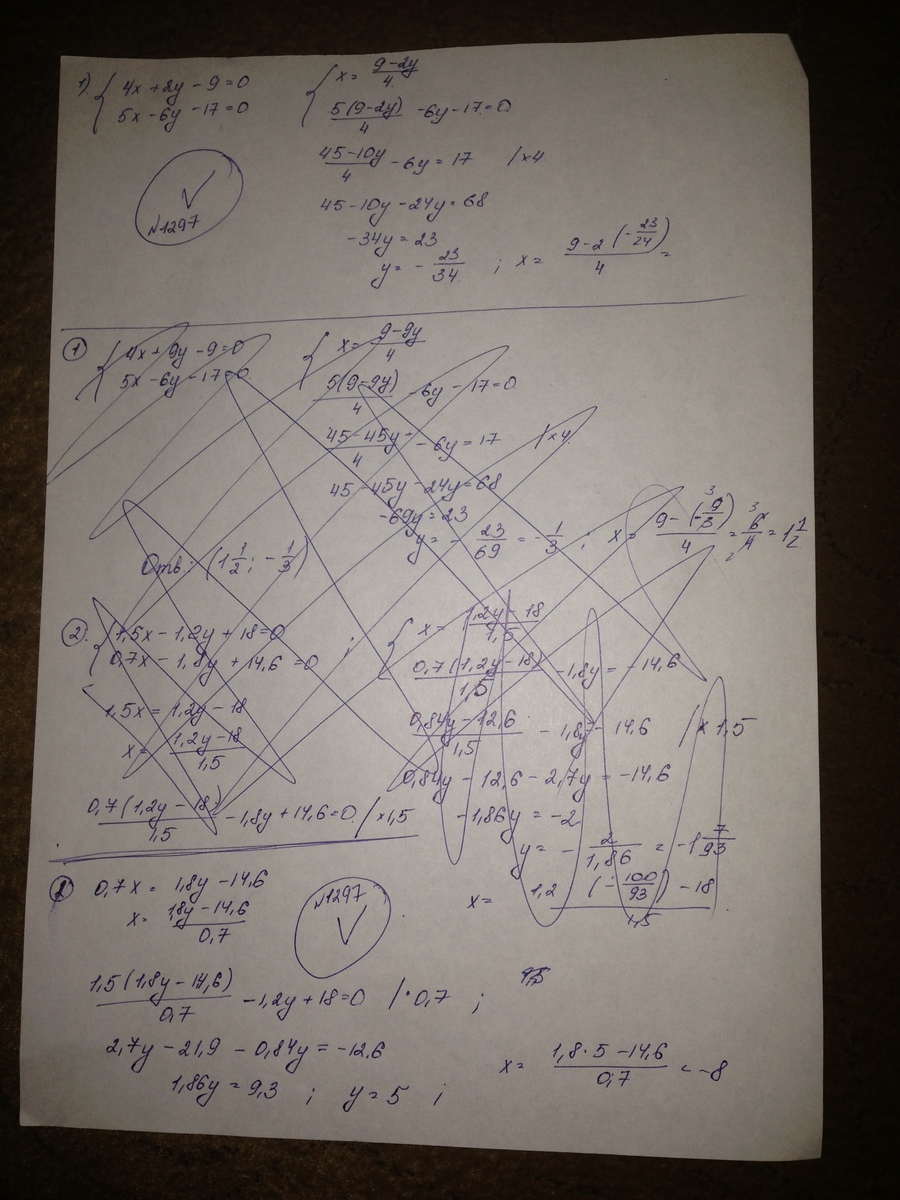 1) { 4x + 2y - 9 = 0
5x - 6y - 17 = 0
{ x = (9-2y)/4
5(9-2y)/4 - 6y - 17 = 0
(45-10y)/4 - 6y = 17 /×4
45 - 10y - 24y = 68
-34y = 23
y = - 23/34 ; x = (9 - 2(-23/24))/4 =
№1297
1) { 4x + 9y - 9 = 0
5x - 6y - 17 = 0
{ x = (9-9y)/4
5(9-9y)/4 - 6y - 17 = 0
(45-45y)/4 - 6y = 17 /×4
45 - 45y - 24y = 68
-69y = 23
y = - 23/69 = - 1/3 ; x = (9 - (-9/3))/4 = 6/4 = 1 1/2
Отв: (1 1/2 ; - 1/3)
2. { 1,5x - 1,2y + 18 = 0 ;
0,7x - 1,8y + 14,6 = 0
1,5x = 1,2y - 18
x = (1,2y - 18)/1,5
0,7(1,2y - 18)/1,5 - 1,8y + 14,6 = 0 /×1,5
{ x = (1,2y - 18)/1,5
0,7(1,2y - 18)/1,5 - 1,8y = -14,6
(0,84y - 12,6)/1,5 - 1,8y = - 14,6 /×1,5
0,84y - 12,6 - 2,7y = -14,6
-1,86y = -2
y = - 2/1,86 = -1 7/93
x = (1,2 (-100/93) - 18)/1,5
2) 0,7x = 1,8y - 14,6
x = (1,8y - 14,6)/0,7
№1297
1,5(1,8y - 14,6)/0,7 - 1,2y + 18 = 0 /·0,7 ;
2,7y - 21,9 - 0,84y = -12,6
1,86y = 9,3 ; y = 5 ;
x = (1,8·5 - 14,6)/0,7 = -8